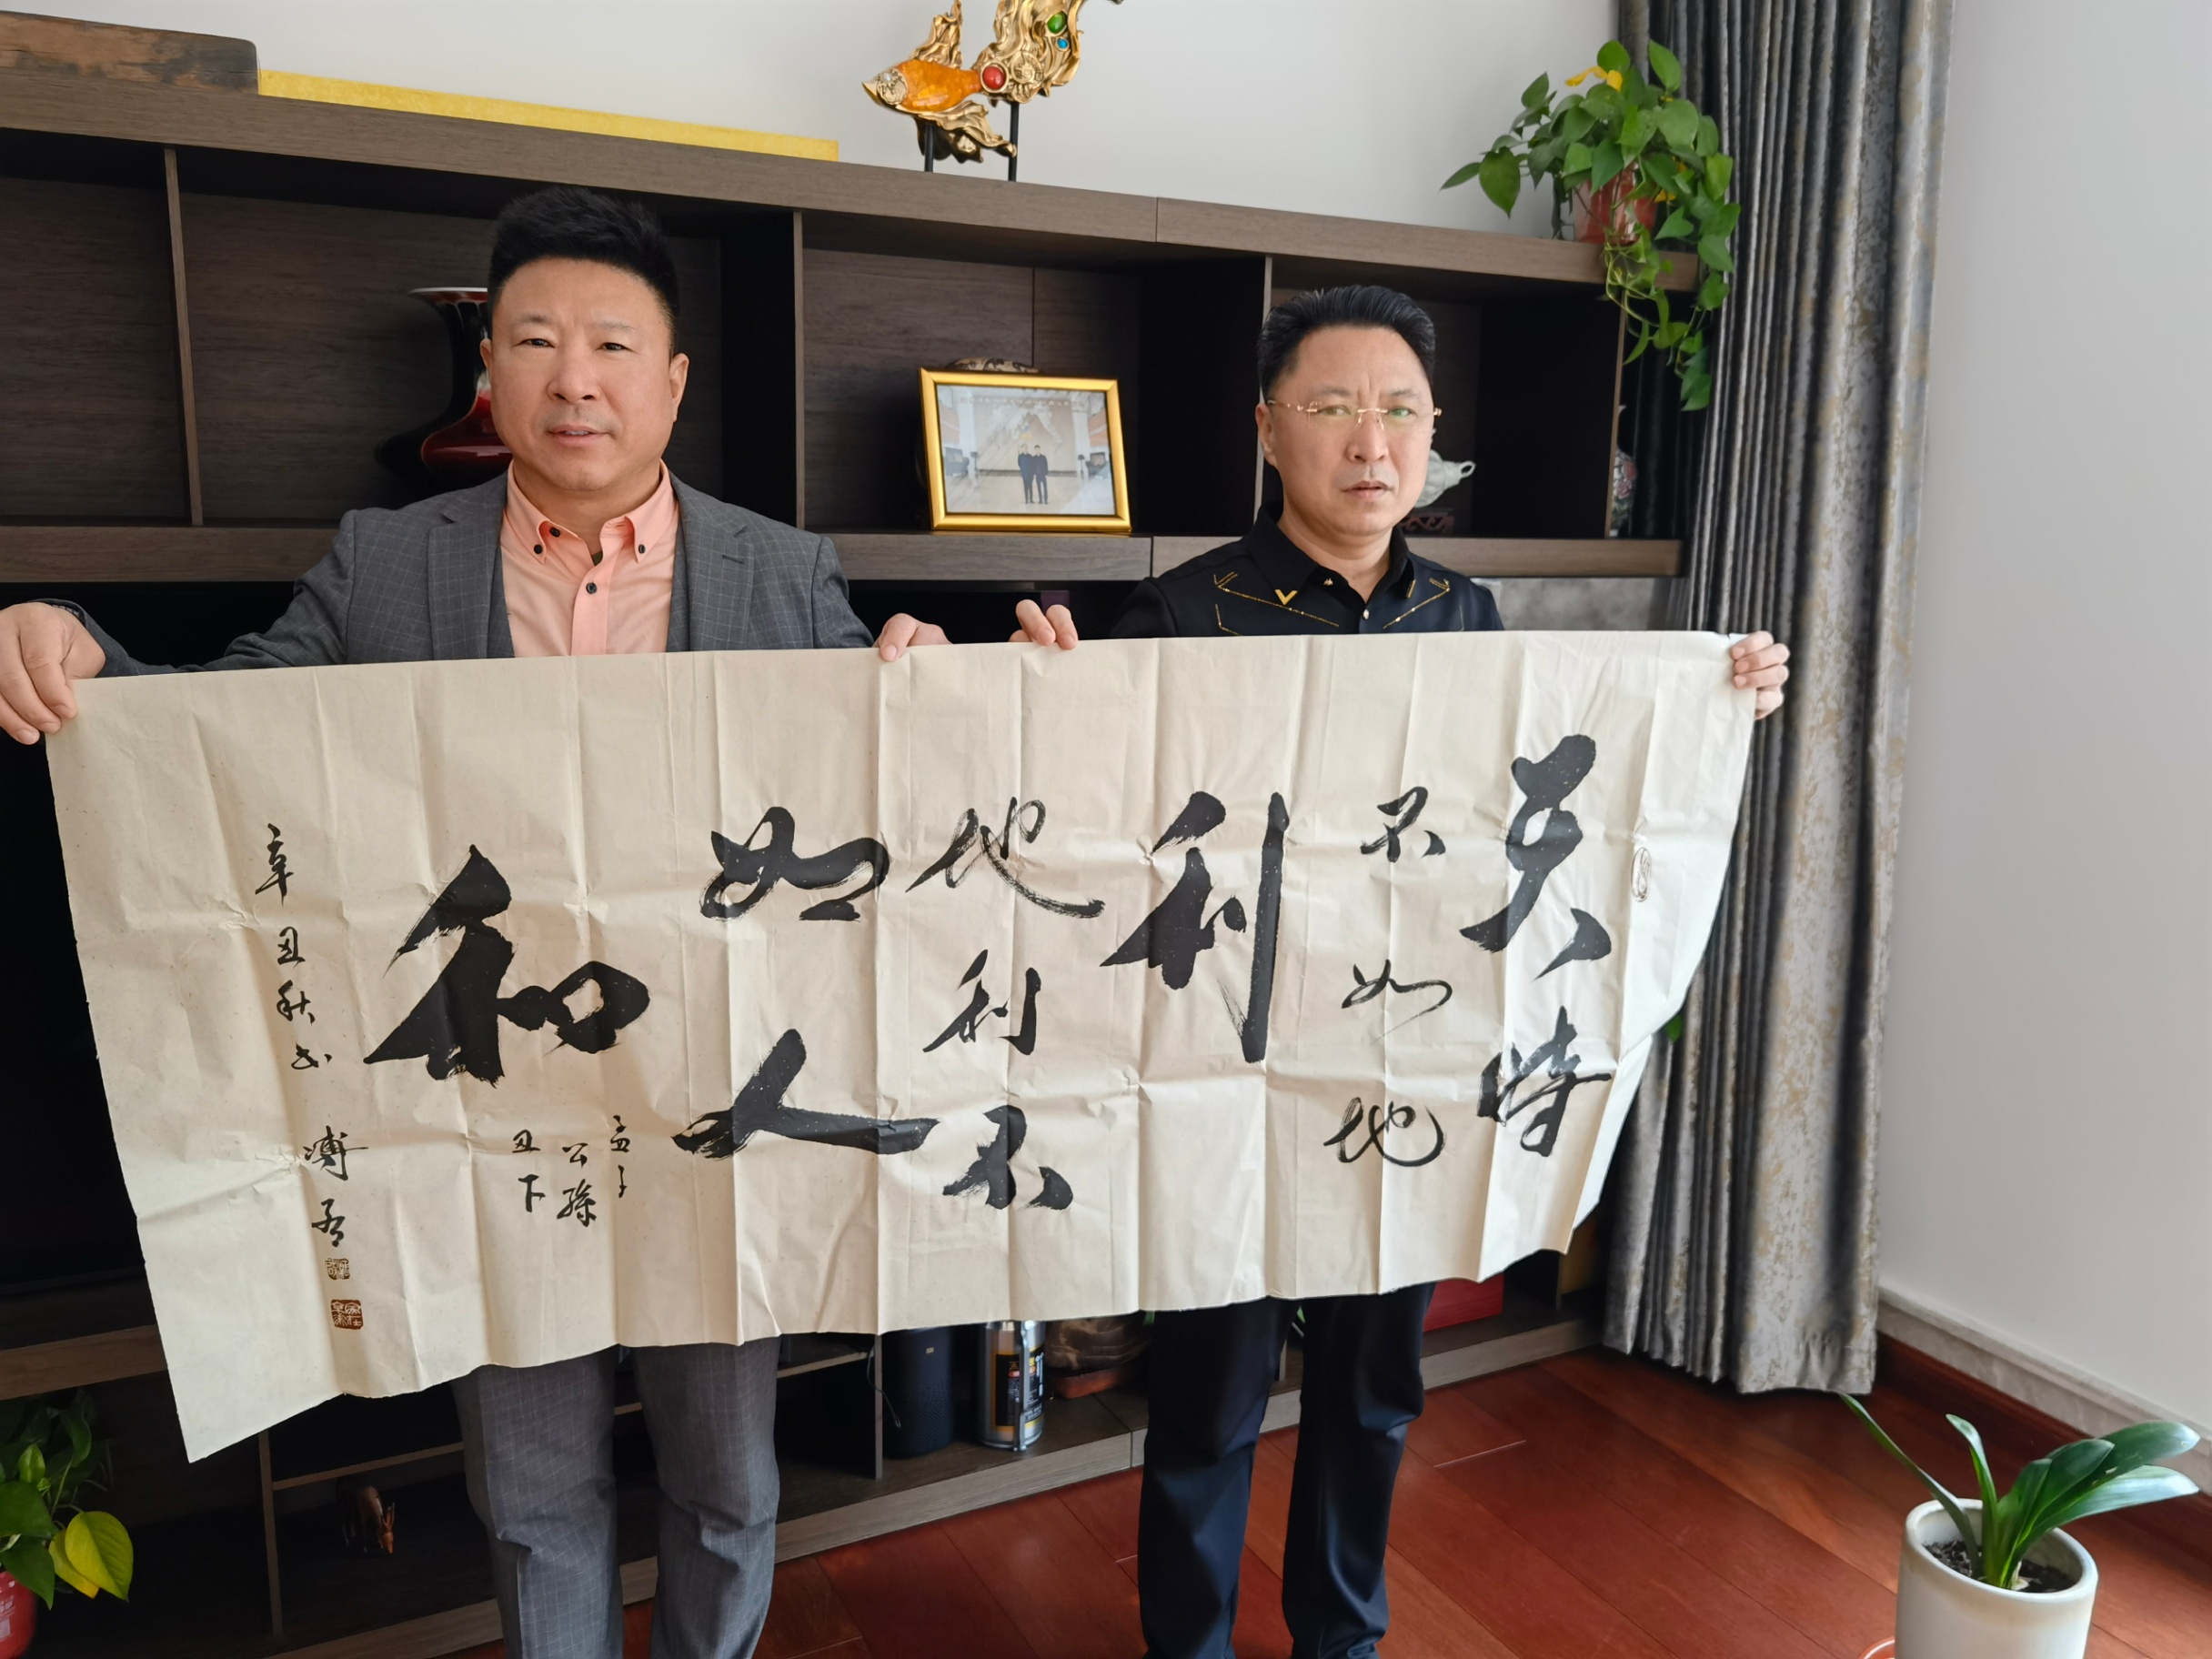 天时
不如地
利
地利不
如人
和
孟子
公孫
丑下
辛丑秋书